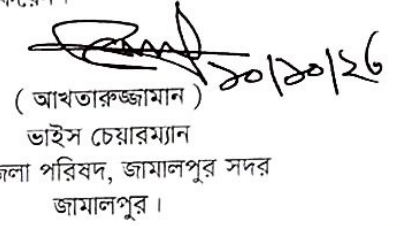 ( আখতারুজ্জামান )
ভাইস চেয়ারম্যান
জলা পরিষদ, জামালপুর সদর
জামালপুর ।